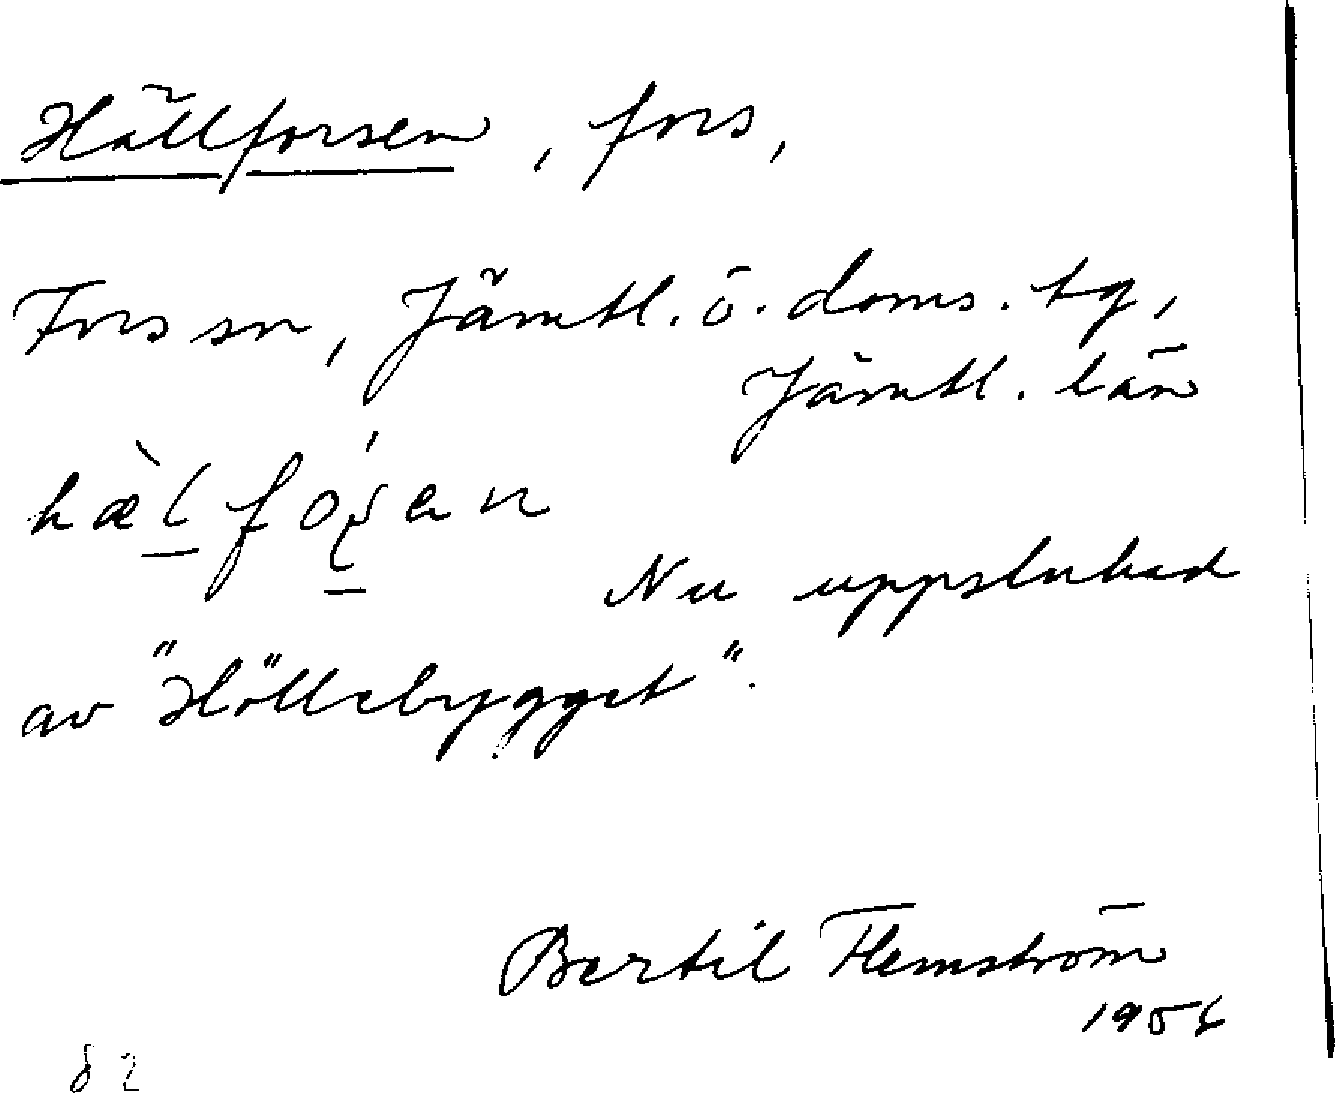 Hällforsen, fors,
Fors sn, Jämtl. ö. doms. tg,
Jämtl. län
hæ̀l̲ foʂ́en
Nu uppslukad
av "Höllebygget".
Bertil Flemström
1956
82